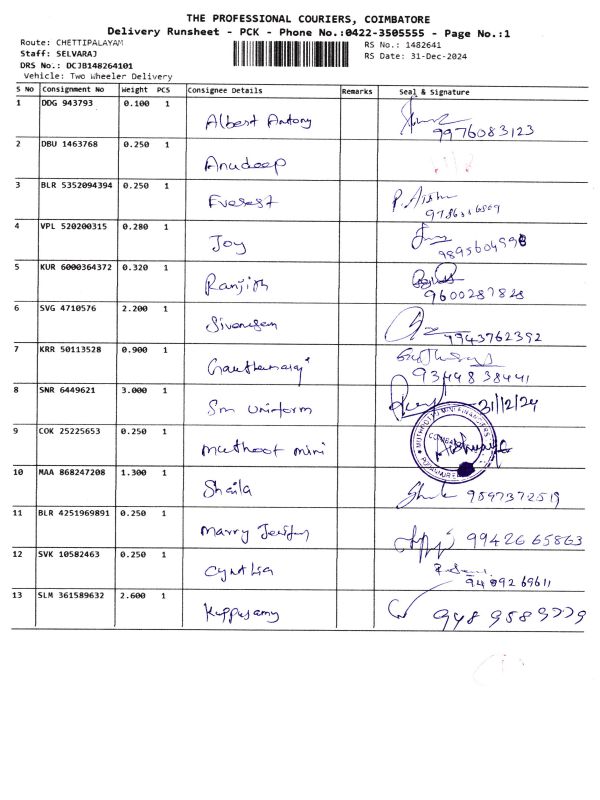 THE PROFESSIONAL COURIERS, COIMBATORE
Delivery Runsheet - PCK - Phone No.:0422-3505555 - Page No.:1
Route: CHETTIPALAYAM
RS No.: 1482641
Staff: SELVARAJ
RS Date: 31-Dec-2024
DRS No.: DCJB148264101
Vehicle: Two Wheeler Delivery
S No Consignment No Weight PCS Consignee Details Remarks Seal & Signature
1 DDG 943793 0.100 1 Albert Antony 9976083123
2 DBU 1463768 0.250 1 Anudeep
3 BLR 5352094394 0.250 1 Everest
4 VPL 520200315 0.280 1 Joy
5 KUR 6000364372 0.320 1 Ranjith 9600287828
6 SVG 4710576 2.200 1 9943762392
7 KRR 50113528 0.900 1 Gauthamaraj 9344838441
8 SNR 6449621 3.000 1 Sm Uniform 31/12/24
9 COK 25225653 0.250 1 Muthoot mini
10 MAA 868247208 1.300 1 Shaila 9597372519
11 BLR 4251969891 0.250 1 Marry 9942665863
12 SVK 10582463 0.250 1 Cynthia
13 SLM 361589632 2.600 1 Kuppusamy 9489589779